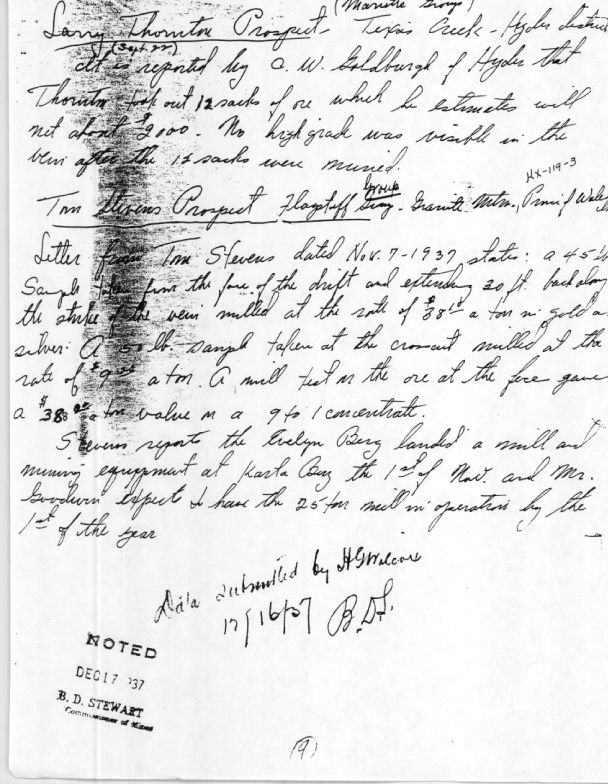 (Mariette Group)
Larry Thornton Prospect - Texas Creek - Hyder district
(Sept. 22)
It is reported by A. W. Goldburgh of Hyder that
Thornton took out 12 sacks of ore which he estimates will
net about $2000. No high grade was visible in the
vein after the 12 sacks were mined.
HX-119-3
Group
Tom Stevens Prospect Flagstaff - Granite Mtn., Prince of Wales
Letter from Tom Stevens dated Nov. 7-1937 states: a 45 lb
Sample taken from the face of the drift and extending 20 ft. back along
the strike of the vein milled at the rate of $38 a ton in gold a
silver. A 50 lb. sample taken at the crosscut milled at the
rate of $9 a ton. A mill test on the ore at the face gave
a $38 a ton value in a 9 to 1 concentrate.
Stevens reports the Evelyn Berg landed a mill and
mining equipment at Karta Bay the 1st of Nov. and Mr.
Goodwin expect to have the 25 ton mill in operation by the
1st of the year
Data submitted by HG Walcox
12/16/37 B.D.S.
NOTED
DEC 17 '37
B. D. STEWART
Commissioner of Mines
(9)